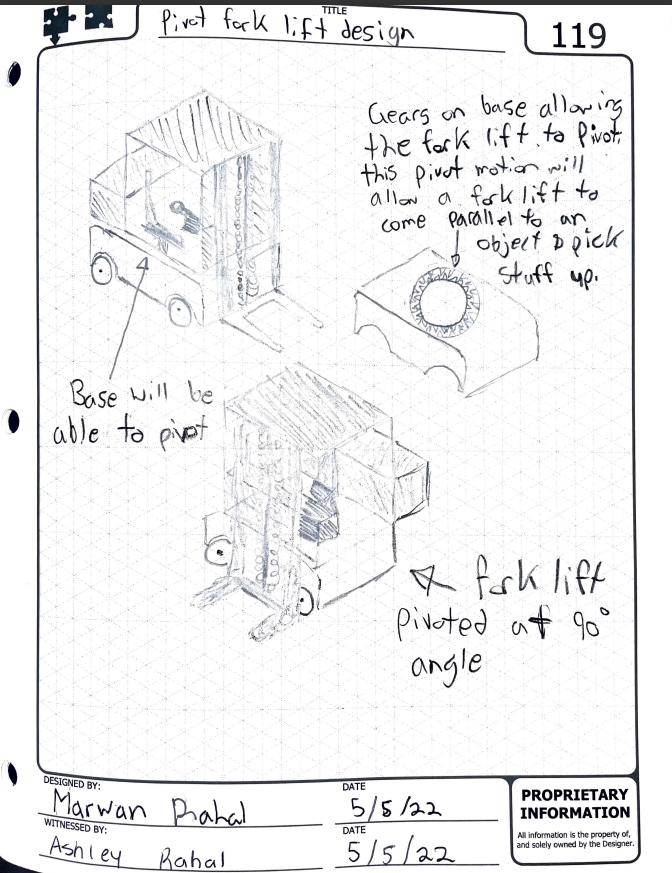 TITLE
Pivot fork lift design
119
Gears on base allowing
the fork lift to Pivot,
this pivot motion will
allow a fork lift to
come parallel to an
object & pick
stuff up.
Base will be
able to pivot
fork lift
Pivoted at 90°
angle
DESIGNED BY:
Marwan Rahal
DATE
5/5/22
WITNESSED BY:
Ashley Rahal
DATE
5/5/22
PROPRIETARY
INFORMATION
All information is the property of,
and solely owned by the Designer.